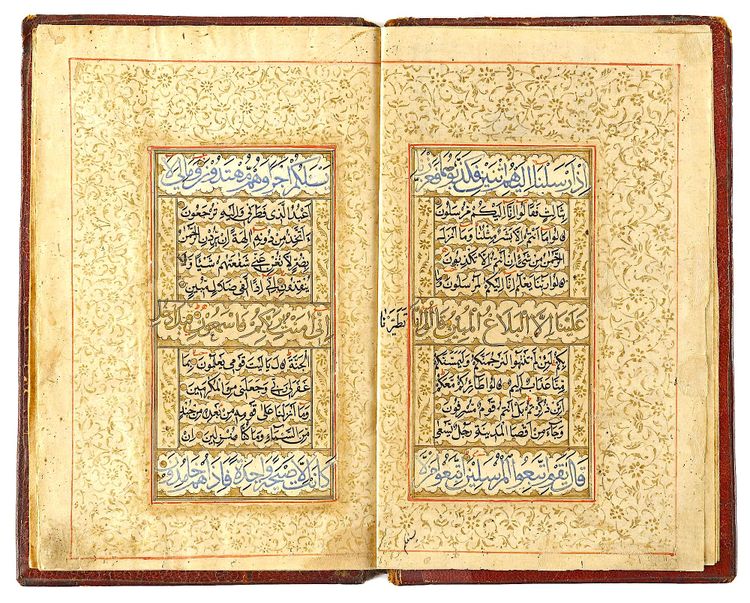 اذ ارسلنا اليهم اثنين فكذبوهما فعززنا
بثالث فقالوا انا اليكم مرسلون
قالوا ما انتم الا بشر مثلنا وما انزل
الرحمن من شيء ان انتم الا تكذبون
قالوا ربنا يعلم انا اليكم لمرسلون وما
علينا الا البلاغ المبين قالوا انا
تطيرنا
بكم لئن لم تنتهوا لنرجمنكم وليمسنكم
منا عذاب اليم قالوا طائركم معكم
ائن ذكرتم بل انتم قوم مسرفون
وجاء من اقصا المدينة رجل يسعى
قال يقوم اتبعوا المرسلين اتبعوا من لا
يسئلكم اجرا وهم مهتدون وما لي لا
اعبد الذي فطرني واليه ترجعون
ءاتخذ من دونه الهة ان يردن الرحمن
بضر لا تغن عني شفعتهم شيئا ولا
ينقذون اني اذا لفي ضلال مبين
اني امنت بربكم فاسمعون قيل ادخل
الجنة قال ياليت قومي يعلمون بما
غفر لي ربي وجعلني من المكرمين
وما انزلنا على قومه من بعده من جند
من السماء وما كنا منزلين ان
كانت الا صيحة واحدة فاذا هم خامدون